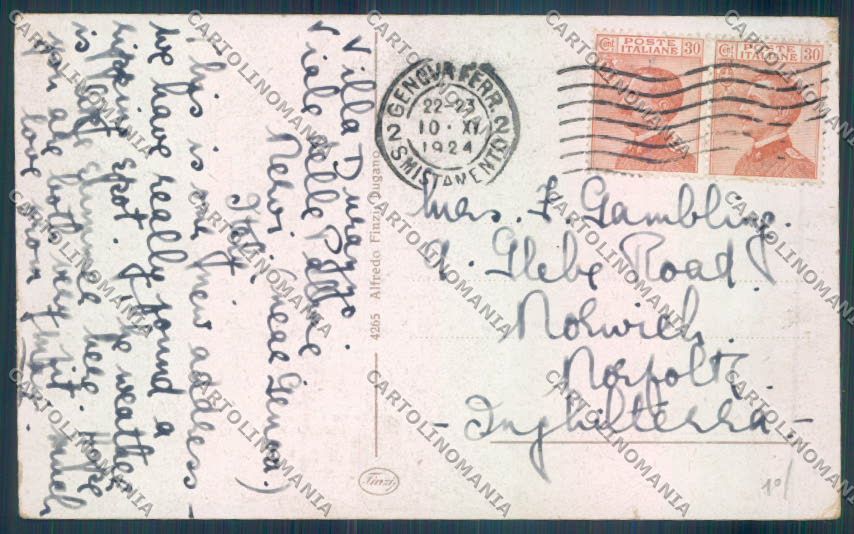 Villa Durazzo.
Viale delle Palme
Nervi (near Genoa.)
Italy.
This is my new address –
we have really found a
ripping spot. The weather
is just summer here. Hope
you are both very fit. Much
love from
4265 Alfredo Finzi, Lugano
Finzi
GENOVA FERR.
22-23
10 · XI
1924
2 SMISTAMENTO 2
POSTE ITALIANE
Cent 30
POSTE ITALIANE
Cent 30
Mrs. F. Gambling.
Glebe Road
Norwich.
Norfolk.
– Inghilterra –
CARTOLINOMANIA